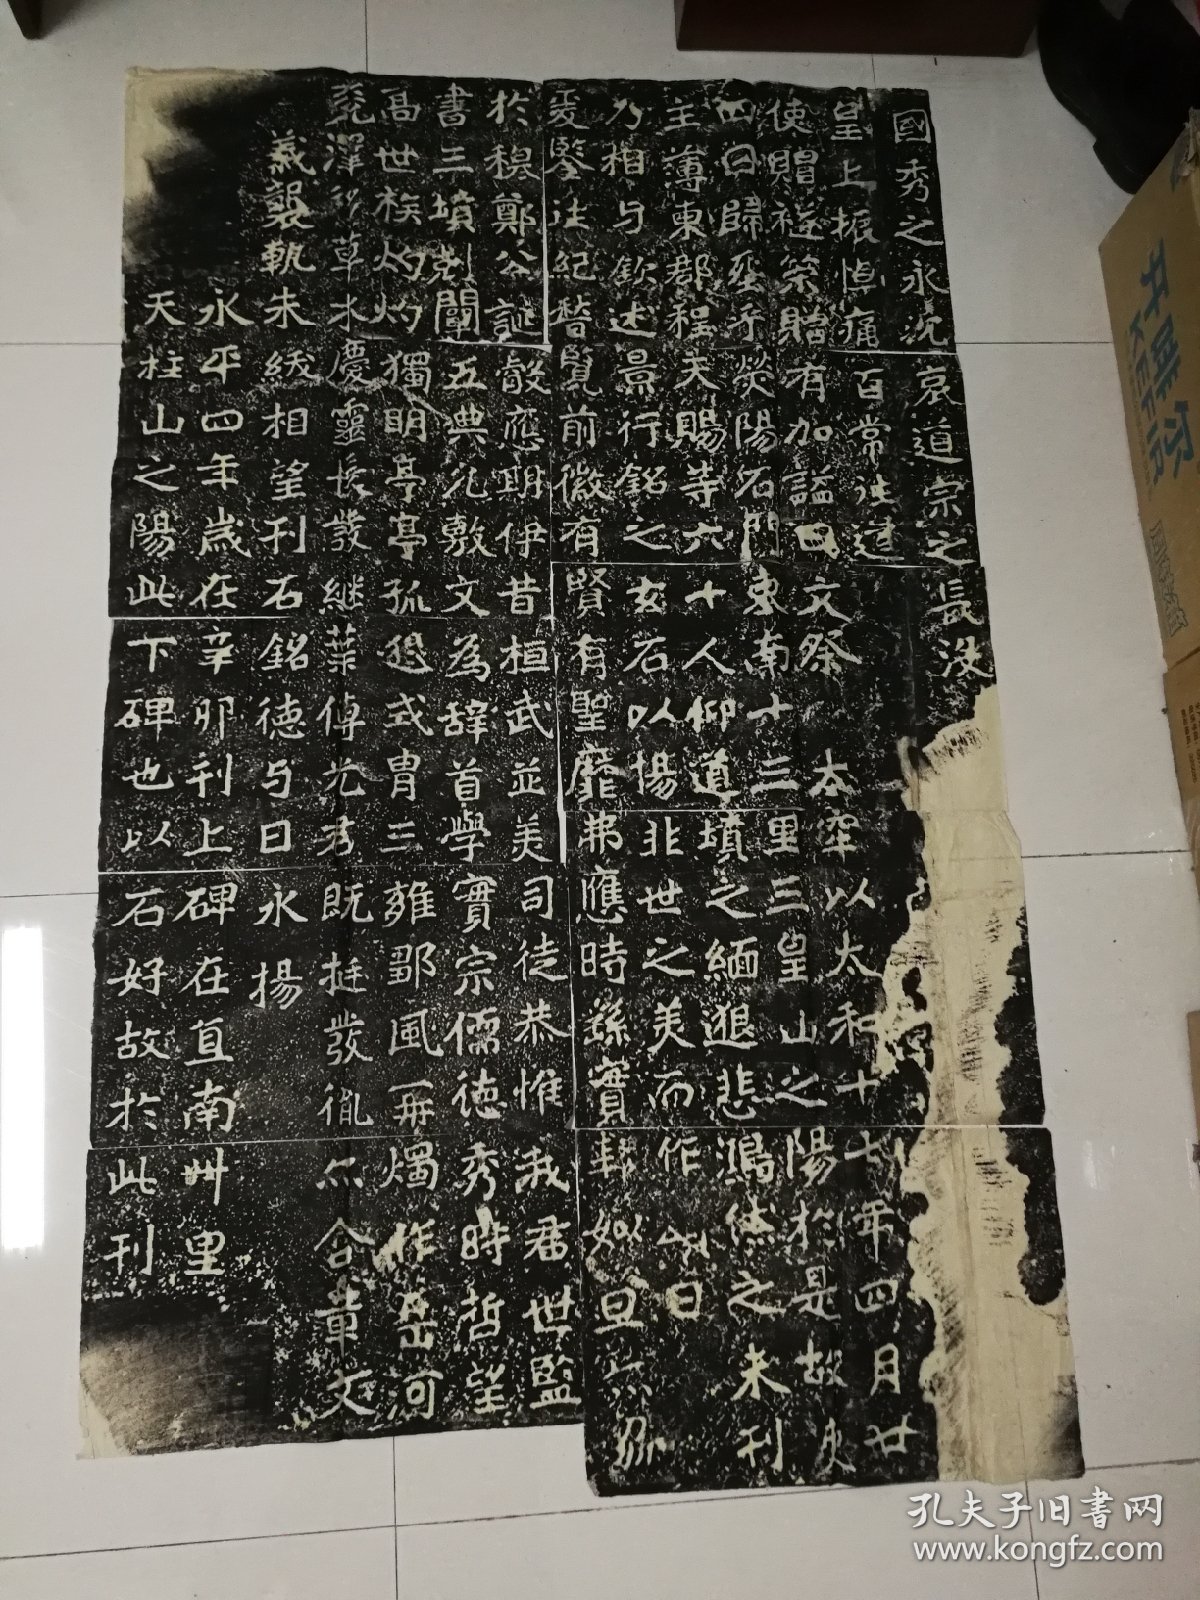 國秀之永沈哀道宗之長没
皇上振悼痛百常往遣
使賵襚策贈有加謚曰文祭 太宰以太和十七年四月廿
四日歸塟乎熒陽石門東南十三里三皇山之陽於是故吏
主薄東郡程天賜等六十人仰道墳之緬邈悲鴻休之未刊
乃相与欽述景行銘之玄石以揚非世之美而作頌曰
爰鑒往紀稽覽前徽有賢有聖靡弗應時繇實契姒旦亦協
於穆鄭公誕睿應期伊昔桓武並美司徒恭惟我君世監
書三墳剖闡五典允敷文為辭首學實宗儒德秀時哲望
高世族灼灼獨明亭亭孤迥式胄三雍鄒風再燭作岳河
兗澤移草木慶靈長發繼葉傳光君既挺發胤亦含章文
義襲軌朱紱相望刊石銘德与日永揚
永平四年歲在辛卯刊上碑在直南卌里
天柱山之陽此下碑也以石好故於此刊
开啡尔
KEFIR
孔夫子旧书网
www.kongfz.com